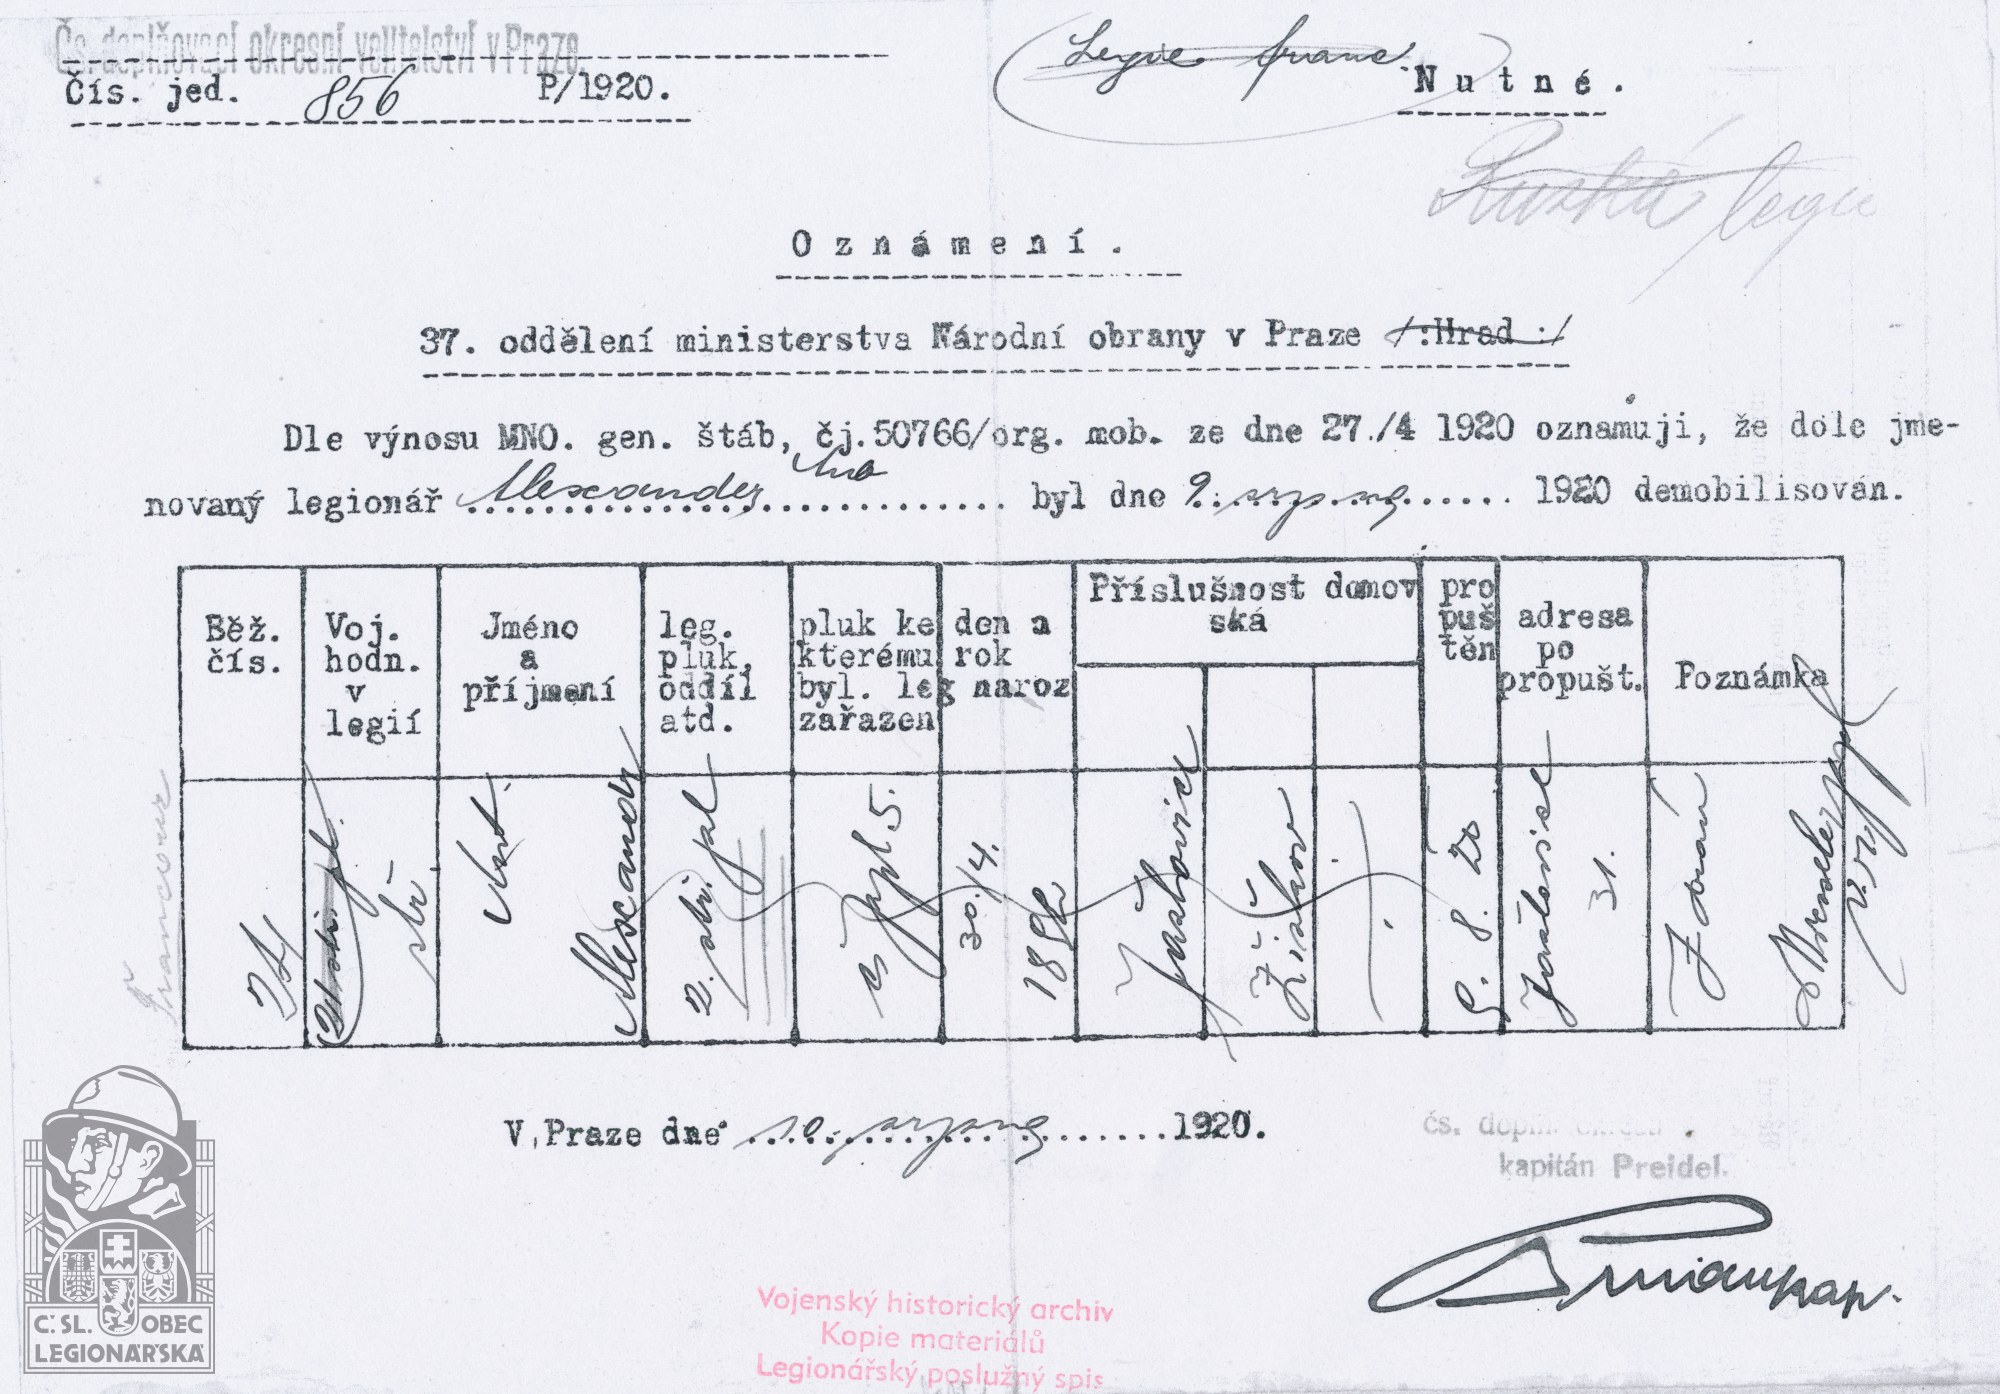 Čs. doplňovací okresní velitelství v Praze.
Čís. jed. 856 P/1920.
Legie franc.
Nutné.
Ruská legie
Oznámení.
37. oddělení ministerstva Národní obrany v Praze /:Hrad:/
Dle výnosu MNO. gen. štáb, čj.50766/org. mob. ze dne 27./4 1920 oznamuji, že dole jme-
novaný legionář Alexander byl dne 9. srpna 1920 demobilisován.
Běž. čís.
Voj. hodn. v legií
Jméno a příjmení
leg. pluk, oddíl atd.
pluk ke kterému byl. leg zařazen
den a rok naroz
Příslušnost domov ská
pro puš těn
adresa po propušt.
Poznámka
Francouz
24
stř.
Alexandr
2. stř. pl
č. 5.
30./4. 1882
Žižkov
9. 8. 20
31.
V Praze dne 10. srpna 1920.
čs. dopln. okresní
kapitán Preidel.
Vojenský historický archiv
Kopie materiálů
Legionářský poslužný spis
Č.SL. OBEC
LEGIONÁŘSKÁ